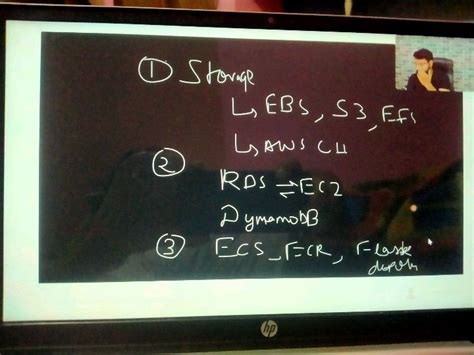 ① Storage
↳ EBS, S3, EFS
↳ AWS CLI
②
RDS ⇌ EC2
DynamoDB
③ ECS, ECR, Flask
hp